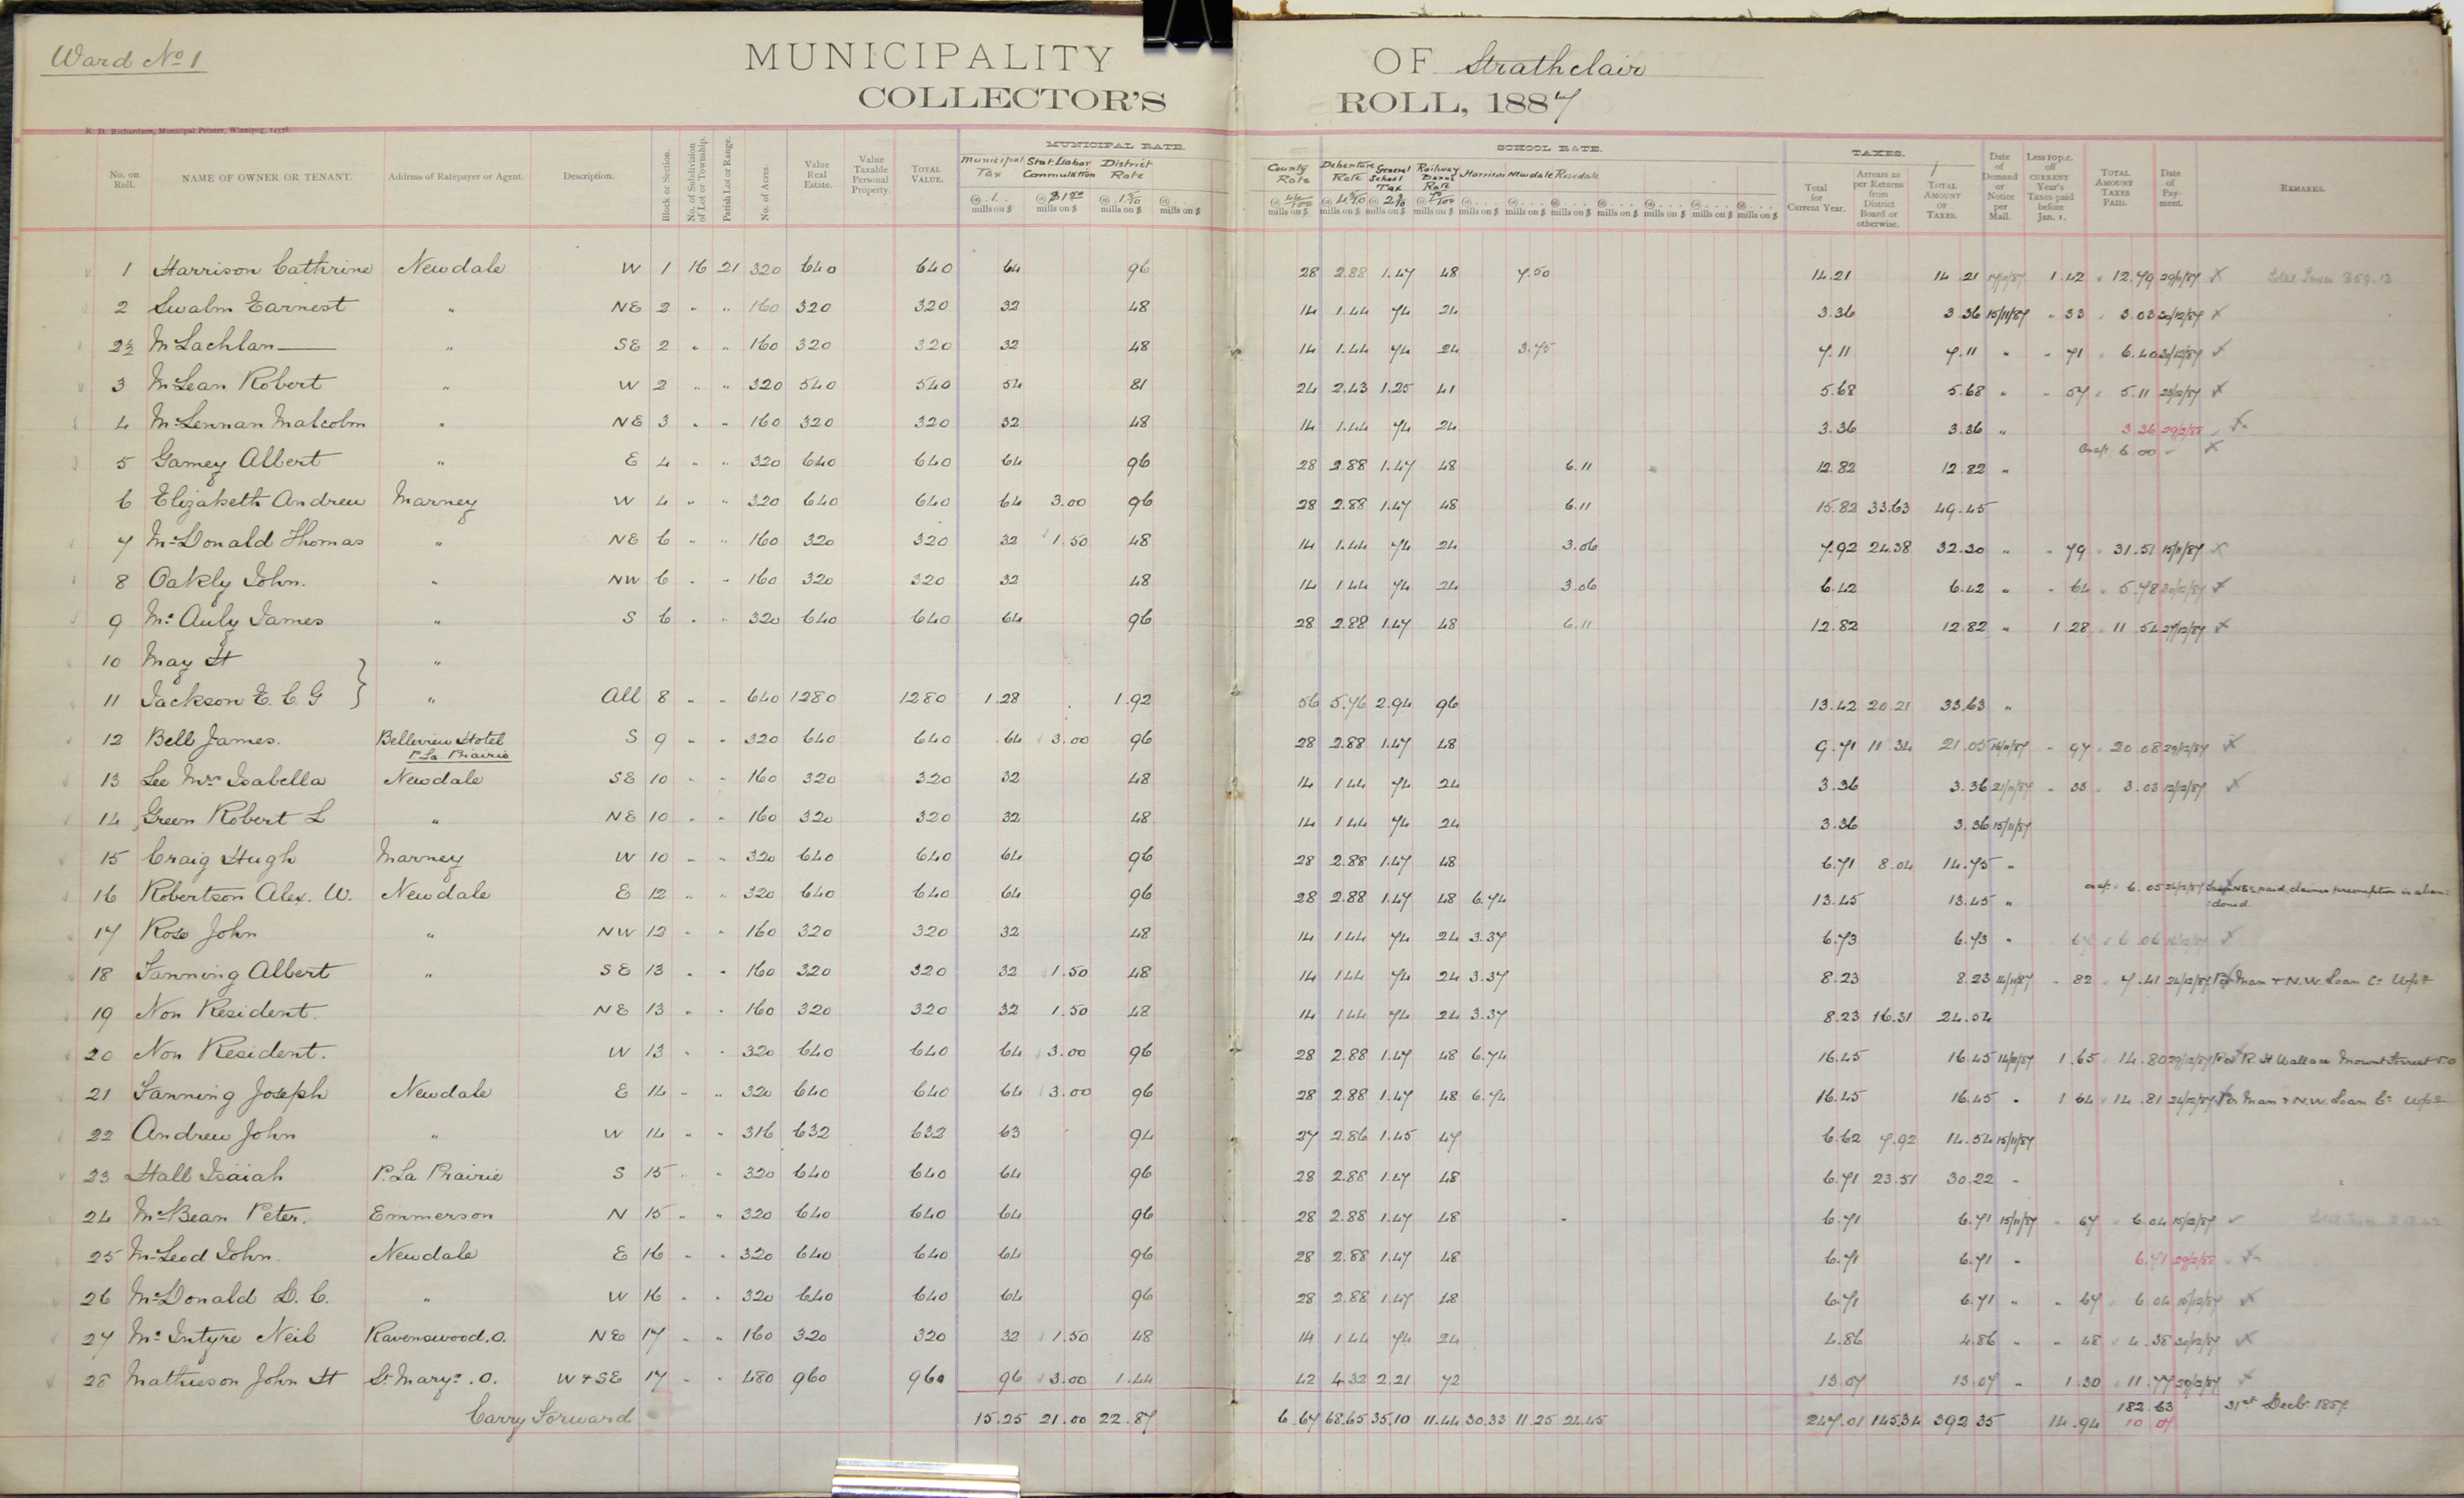 Ward No 1
MUNICIPALITY OF Strathclair
COLLECTOR'S ROLL, 1887
R. D. Richardson, Municipal Printer, Winnipeg,
MUNICIPAL RATE. SCHOOL RATE. TAXES.
No. on Roll. NAME OF OWNER OR TENANT. Address of Ratepayer or Agent. Description. Block or Section. No. of Subdivision of Lot or Township. Parish Lot or Range. No. of Acres. Value Real Estate. Value Taxable Personal Property. TOTAL VALUE. Municipal Tax @ 1 mills on $ Stat. Labor Commutation @ $1 50 mills on $ District Rate @ 1 5/10 mills on $ @ mills on $ County Rate @ 44/100 mills on $ Debenture Rate @ 4 5/10 mills on $ General School Tax @ 2 3/10 mills on $ Railway Bonus Rate mills on $ Harrison @ mills on $ Newdale @ mills on $ Rosedale @ mills on $ @ mills on $ @ mills on $ @ mills on $ @ mills on $ Total for Current Year. Arrears as per Returns from District Board or otherwise. TOTAL AMOUNT OF TAXES. Date of Demand or Notice per Mail. Less 10 p.c. off CURRENT Year's Taxes paid before Jan. 1. TOTAL AMOUNT TAXES PAID. Date of Payment. REMARKS.
1 Harrison Cathrine Newdale W 1 16 21 320 640 640 64 96 28 2.88 1.47 48 7.50 14.21 14.21 1.42 12.79 29/11/87 X
2 Swalm Earnest " NE 2 " " 160 320 320 32 48 14 1.44 74 24 3.36 3.36 15/11/87 " 33 " 3.03 X
2½ McLachlan " SE 2 " " 160 320 320 32 48 14 1.44 74 24 3.75 7.11 7.11 " " 71 " 6.40 X
3 McLean Robert " W 2 " " 320 540 540 54 81 24 2.43 1.25 41 5.68 5.68 " " 57 " 5.11 23/12/87 X
4 McLennan Malcolm " NE 3 " " 160 320 320 32 48 14 1.44 74 24 3.36 3.36 " 3.36 29/2/88 X
5 Gamey Albert " E 4 " " 320 640 640 64 96 28 2.88 1.47 48 6.11 12.82 12.82 " 6.00 X
6 Elizabeth Andrew Marney W 4 " " 320 640 640 64 3.00 96 28 2.88 1.47 48 6.11 15.82 33.63 49.45
7 McDonald Thomas " NE 6 " " 160 320 320 32 1.50 48 14 1.44 74 24 3.06 7.92 24.38 32.30 " " 79 " 31.51 15/11/87 X
8 Oakly John. " NW 6 " " 160 320 320 32 48 14 1.44 74 24 3.06 6.42 6.42 " " 64 " 5.78 30/12/87 X
9 McAuly James " S 6 " " 320 640 640 64 96 28 2.88 1.47 48 6.11 12.82 12.82 " 1.28 " 11.54 27/12/87 X
10 May H "
11 Jackson E. C. G " All 8 " " 640 1280 1280 1.28 1.92 56 5.76 2.94 96 13.42 20.21 33.63 "
12 Bell James. Bellevieu Hotel S 9 " " 320 640 640 64 3.00 96 28 2.88 1.47 48 9.71 11.34 21.05 16/11/87 " 97 " 20.08 29/12/87 X
P. La. Prairie
13 Lee Mrs Isabella Newdale SE 10 " " 160 320 320 32 48 14 1.44 74 24 3.36 3.36 21/11/87 " 33 " 3.03 12/12/87 X
14 Green Robert L " NE 10 " " 160 320 320 32 48 14 1.44 74 24 3.36 3.36 15/11/87
15 Craig Hugh Marney W 10 " " 320 640 640 64 96 28 2.88 1.47 48 6.71 8.04 14.75 "
16 Robertson Alex. W. Newdale E 12 " " 320 640 640 64 96 28 2.88 1.47 48 6.74 13.45 13.45 " 6.05 paid, claims preemption is abandoned
17 Rose John " NW 12 " " 160 320 320 32 48 14 1.44 74 24 3.37 6.73 6.73 " 67 6.06 X
18 Fanning Albert " SE 13 " " 160 320 320 32 1.50 48 14 1.44 74 24 3.37 8.23 8.23 14/11/87 " 82 " 7.41 24/12/87 Per Man & N.W. Loan Co Wpg
19 Non Resident. NE 13 " " 160 320 320 32 1.50 48 14 1.44 74 24 3.37 8.23 16.31 24.54
20 Non Resident. W 13 " " 320 640 640 64 3.00 96 28 2.88 1.47 48 6.74 16.45 16.45 14/11/87 1.65 " 14.80 29/12/87 Per R. H Wallace Mount Forrest P.O
21 Fanning Joseph Newdale E 14 " " 320 640 640 64 3.00 96 28 2.88 1.47 48 6.74 16.45 16.45 " 1 64 " 14.81 24/12/87 Per Man & N.W. Loan Co Wpg
22 Andrew John " W 14 " " 316 632 632 63 94 27 2.86 1.45 47 6.62 7.92 14.54 15/11/87
23 Hall Isaiah P. La Prairie S 15 " " 320 640 640 64 96 28 2.88 1.47 48 6.71 23.51 30.22 "
24 McBean Peter. Emmerson N 15 " " 320 640 640 64 96 28 2.88 1.47 48 6.71 6.71 15/11/87 " 67 " 6.04 15/12/87
25 McLeod John. Newdale E 16 " " 320 640 640 64 96 28 2.88 1.47 48 6.71 6.71 " 6.71 29/2/88 X
26 McDonald D. C. " W 16 " " 320 640 640 64 96 28 2.88 1.47 48 6.71 6.71 " " 67 " 6.04 15/12/87 X
27 McIntyre Neil Ravenswood. O. NE 17 " " 160 320 320 32 1.50 48 14 1.44 74 24 4.86 4.86 " " 48 " 4.38 30/12/87 X
28 Mathieson John H St Marys. O. W & SE 17 " " 480 960 960 96 3.00 1.44 42 4.32 2.21 72 13.07 13.07 " 1.30 " 11.77 29/12/87 X
Carry Forward 15.25 21.00 22.87 6.67 68.65 35.10 11.44 30.33 11.25 24.45 247.01 145.34 392.35 14.94 182.63 31st Decbr 1887
10 07